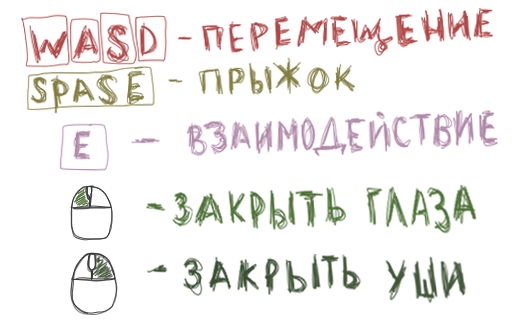 WASD - ПЕРЕМЕЩЕНИЕ
SPASE - ПРЫЖОК
E - ВЗАИМОДЕЙСТВИЕ
- ЗАКРЫТЬ ГЛАЗА
- ЗАКРЫТЬ УШИ